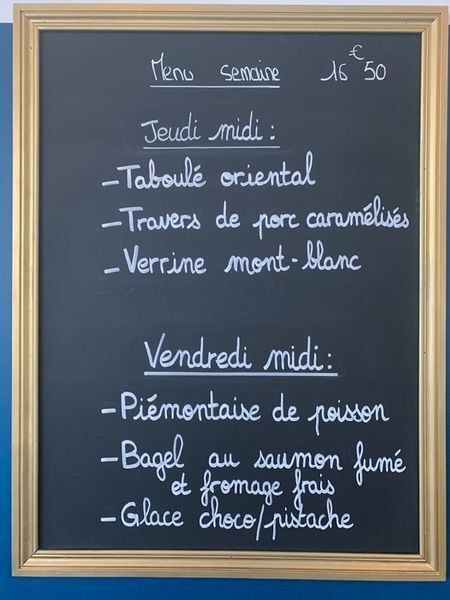 Menu semaine 16€50
Jeudi midi :
- Taboulé oriental
- Travers de porc caramélisés
- Verrine mont-blanc
Vendredi midi :
- Piémontaise de poisson
- Bagel au saumon fumé
et fromage frais
- Glace choco/pistache